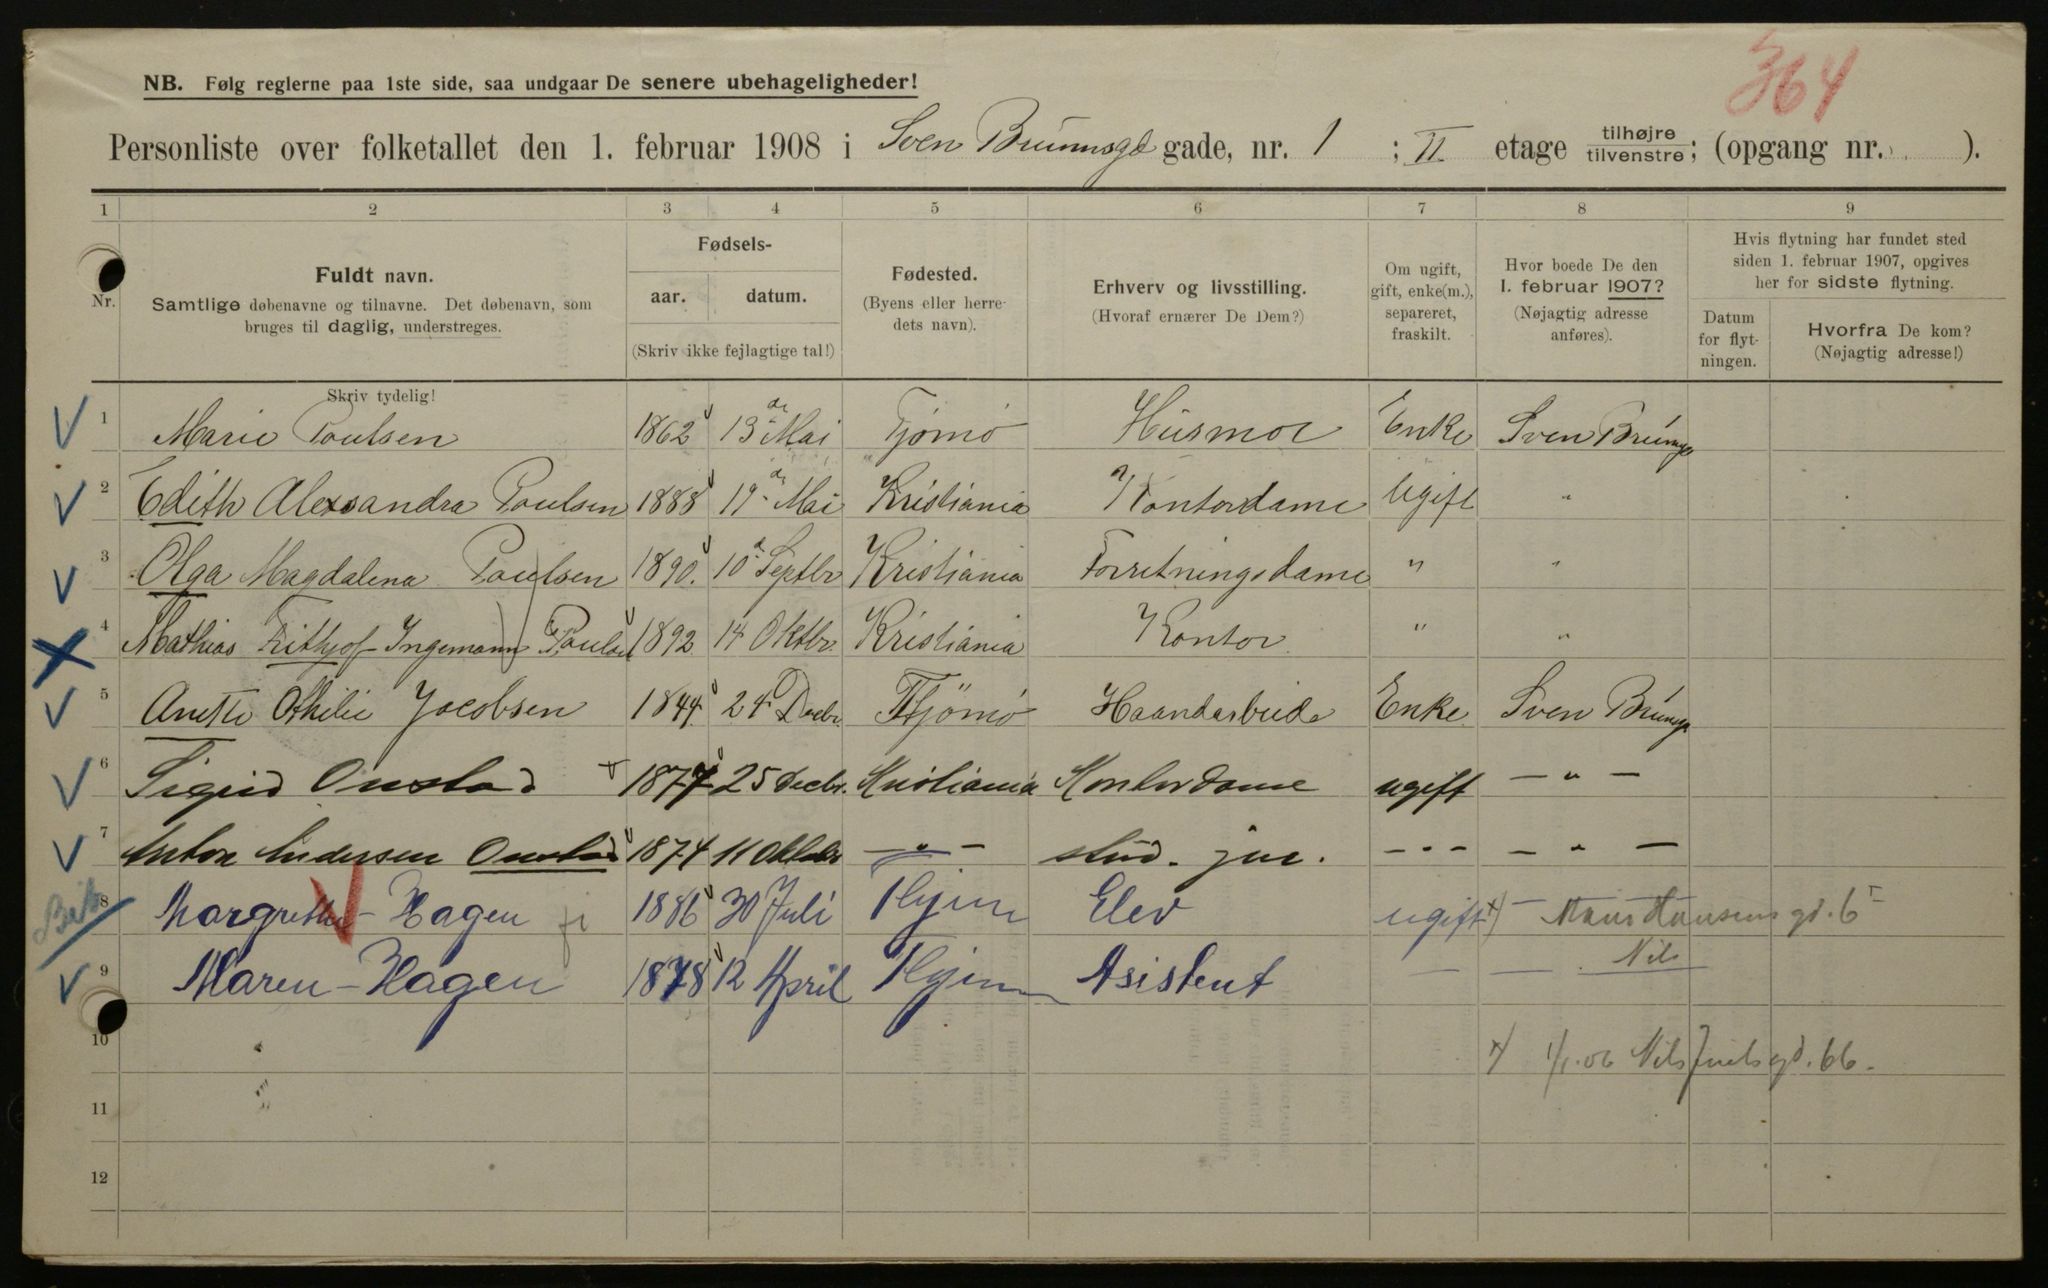 364
NB. Følg reglerne paa 1ste side, saa undgaar De senere ubehageligheder!
Personliste over folketallet den 1. februar 1908 i Sven Bruunsgd gade, nr. 1 ; II. etage tilhøjre/tilvenstre; (opgang nr. ).
1 2 3 4 5 6 7 8 9
Nr.
Fuldt navn.
Samtlige døbenavne og tilnavne. Det døbenavn, som
bruges til daglig, understreges.
Skriv tydelig!
Fødsels-
aar. datum.
(Skriv ikke fejlagtige tal!)
Fødested.
(Byens eller herre-
dets navn).
Erhverv og livsstilling.
(Hvoraf ernærer De Dem?)
Om ugift,
gift, enke(m.),
separeret,
fraskilt.
Hvor boede De den
1. februar 1907?
(Nøjagtig adresse
anføres).
Hvis flytning har fundet sted
siden 1. februar 1907, opgives
her for sidste flytning.
Datum
for flyt-
ningen.
Hvorfra De kom?
(Nøjagtig adresse!)
1 Marie Poulsen 1862 13 Mai Tjømø Husmor Enke Sven Bruunsgd
2 Edith Alexsandra Poulsen 1888 19 Mai Kristiania Kontordame Ugift "
3 Olga Magdalena Poulsen 1890. 10 Septbr Kristiania Forretningsdame " "
4 Mathias Frithjof Ingemann Poulsen 1892 14 Oktbr. Kristiania Kontor " "
5 Anette Othilie Jacobsen 1844 24 Decbr. Tjömø Haandarbeide Enke Sven Bruunsgd
6 Sigrid Onstad 1877 25 Decbr. Kristiania Kontordame ugift — " —
7 Anton Andersen Onstad 1874 11 Oktober — " — stud. jur. — " — — " —
8 Margrethe - Hagen 1886 30 Juli Elev ugift x)
Nils
9 Maren - Hagen 1878 12 April Asistent — —
10 x) 1/1.06 Nils Juels gd. 66.
11
12